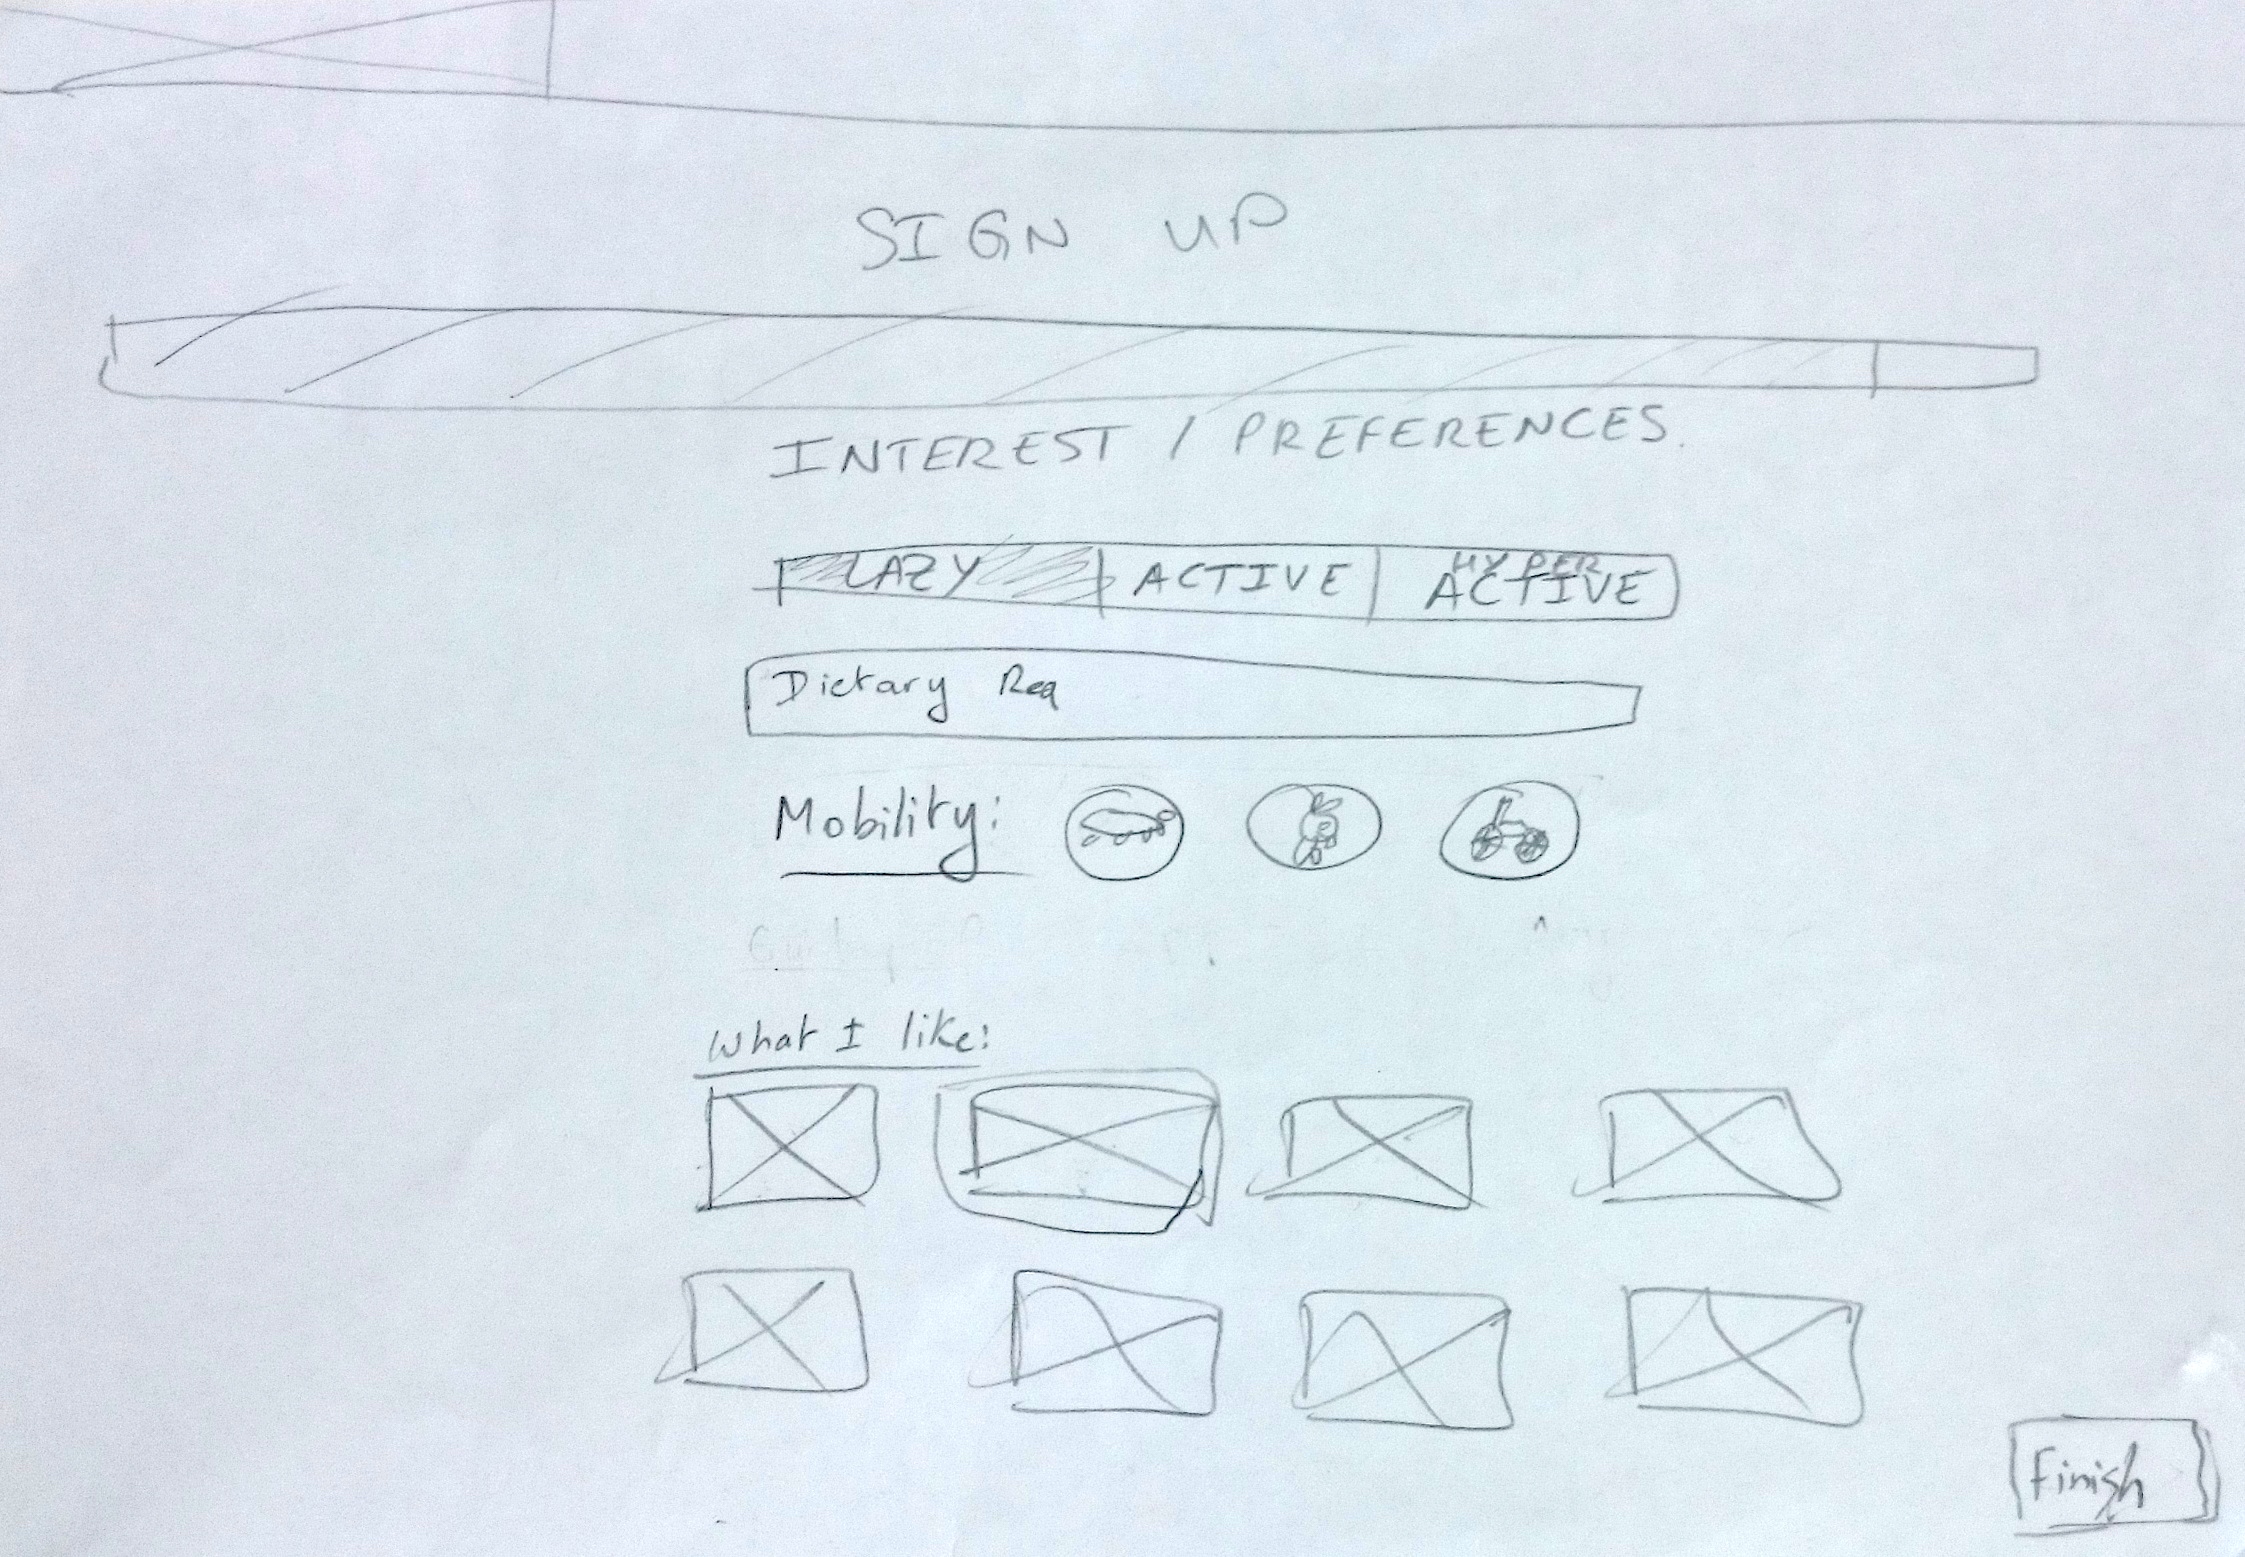 SIGN UP
INTEREST / PREFERENCES.
LAZY ACTIVE HYPER ACTIVE
Dietary Req
Mobility:
What I like:
Finish